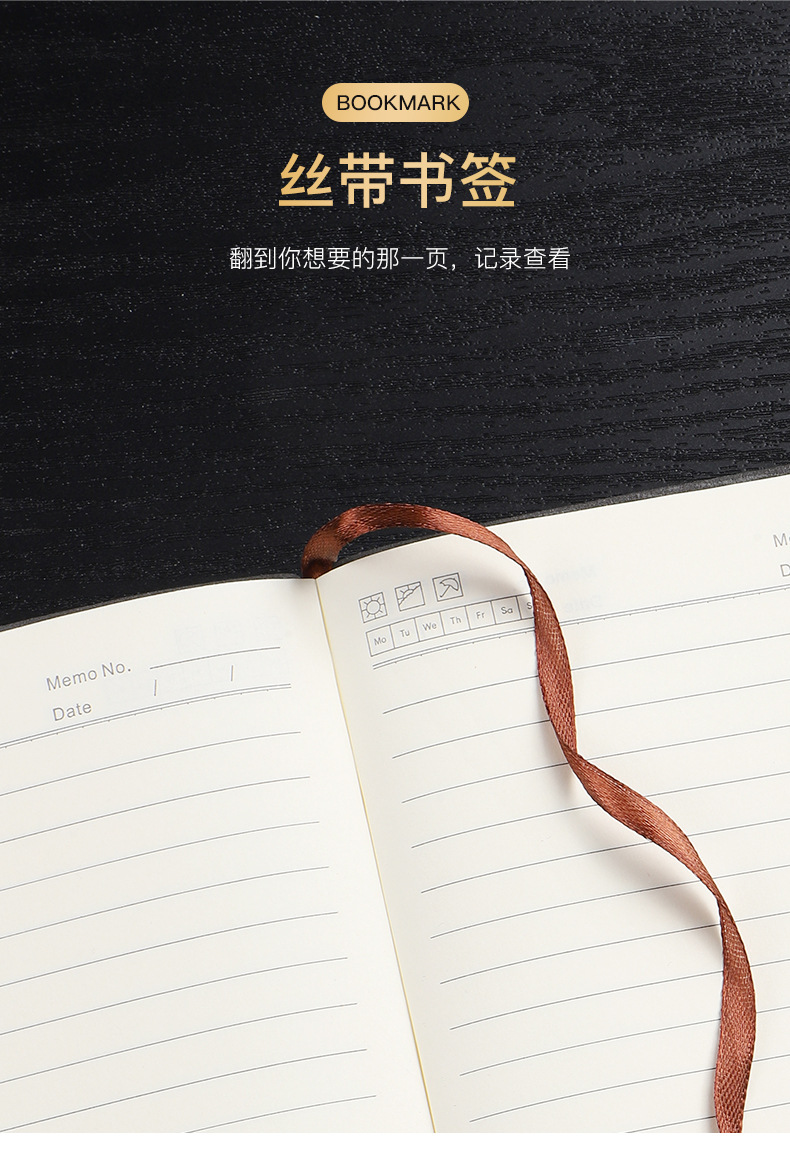 BOOKMARK
丝带书签
翻到你想要的那一页，记录查看
Memo No.
Date / /
Mo Tu We Th Fr Sa S